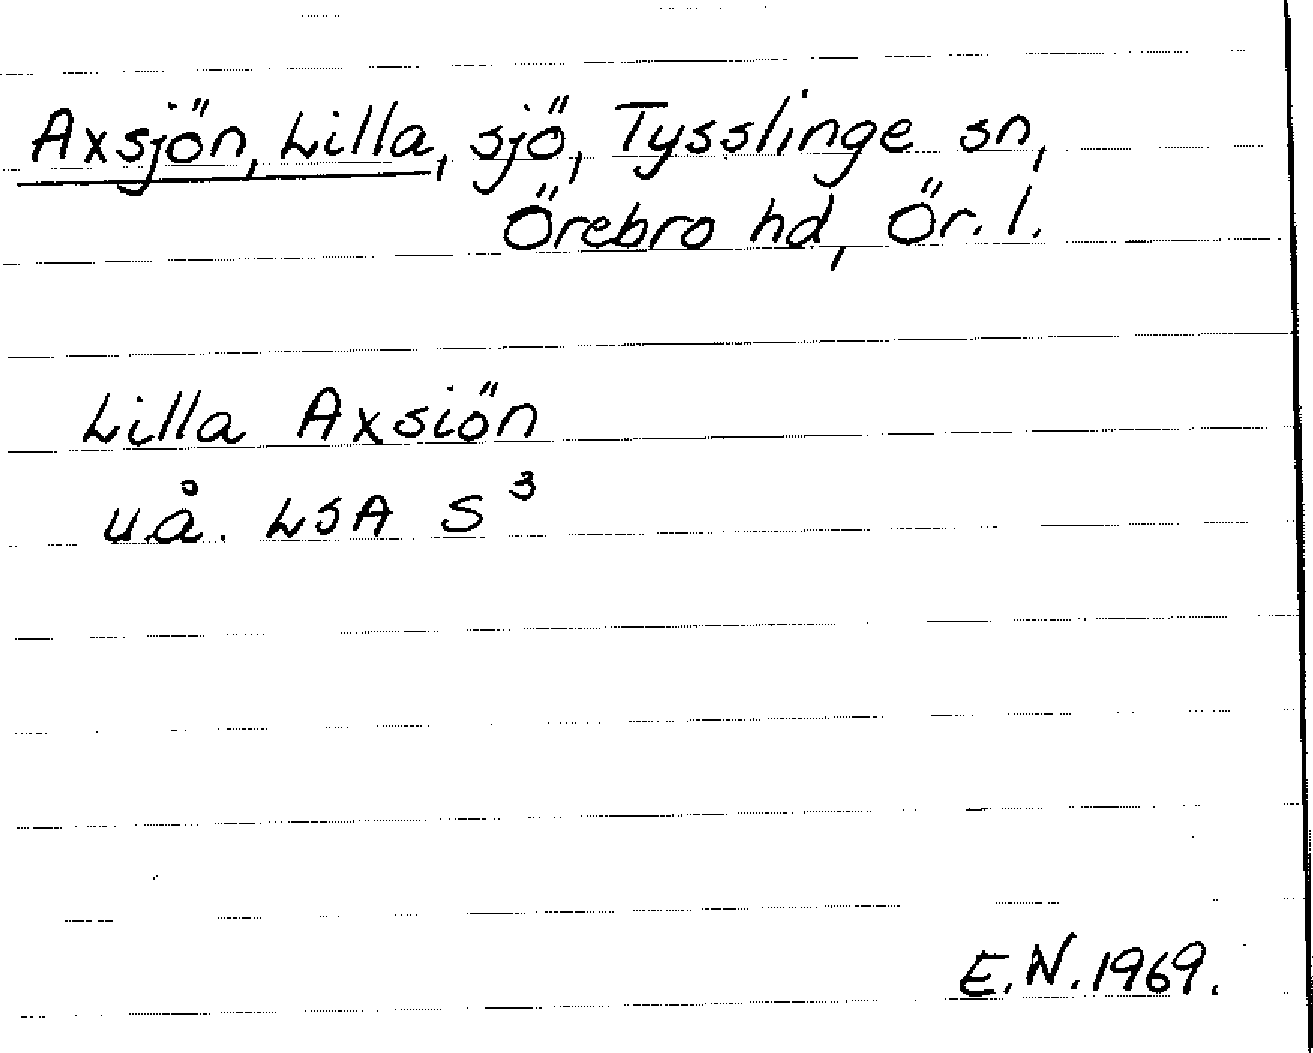 Axsjön, Lilla, sjö, Tysslinge sn,
Örebro hd, Ör. l.
Lilla Axsiön
u å. LSA S³
E.N. 1969.